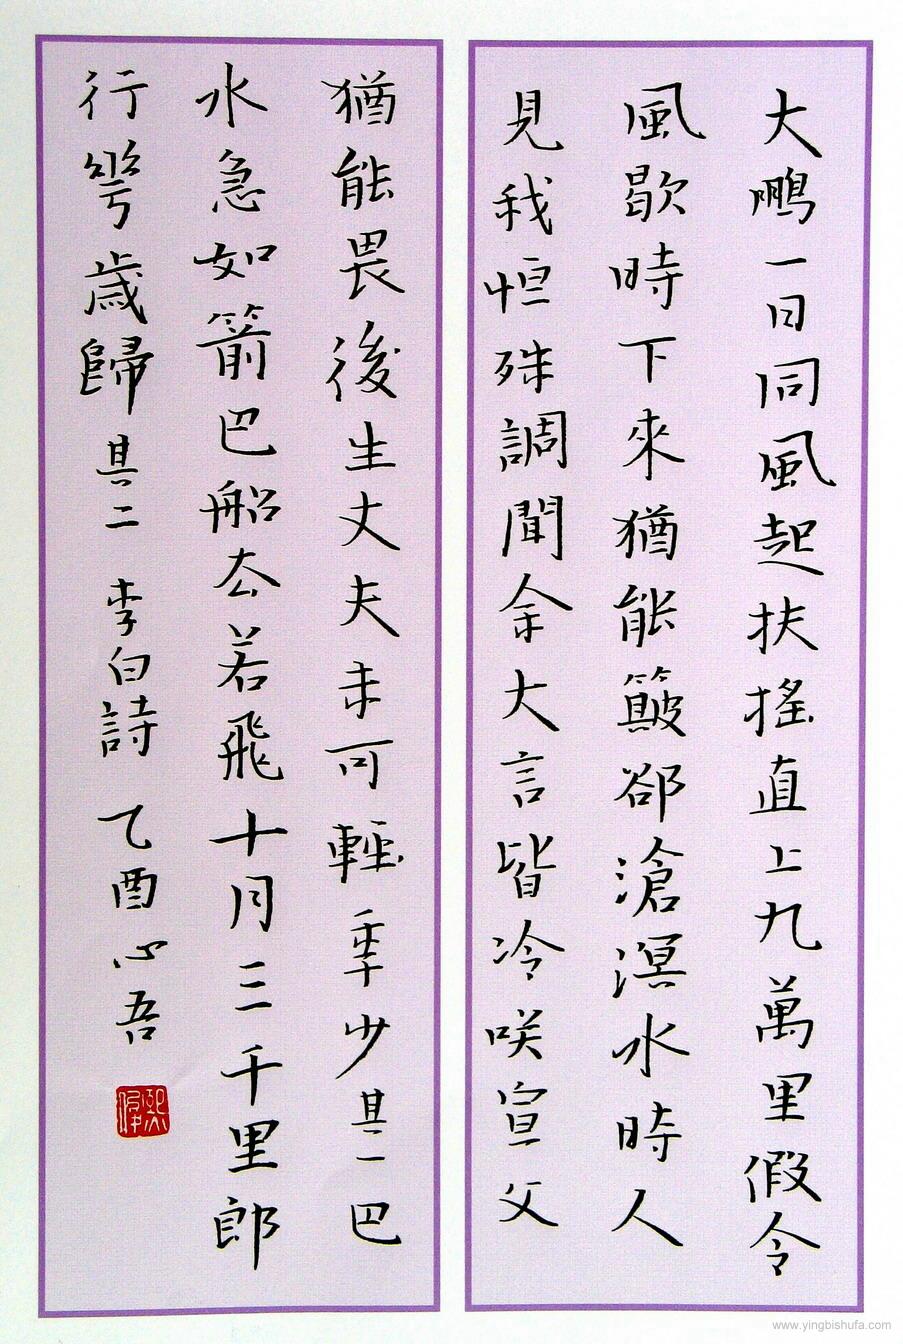 大鵬一日同風起扶搖直上九萬里假令
風歇時下來猶能簸卻滄溟水時人
見我恒殊調聞余大言皆冷咲宣父
猶能畏後生丈夫未可輕季少其一巴
水急如箭巴船去若飛十月三千里郎
行幾歲歸其二李白詩乙酉心吾
www.yingbishufa.com